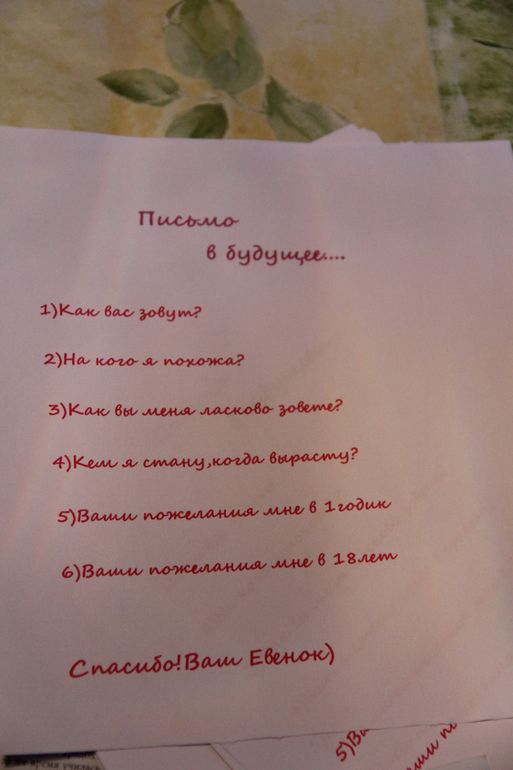 Письмо
в будущее....
1)Как вас зовут?
2)На кого я похожа?
3)Как вы меня ласково зовете?
4)Кем я стану,когда вырасту?
5)Ваши пожелания мне в 1годик
6)Ваши пожелания мне в 18лет
Спасибо!Ваш Евенок)
5)Ва